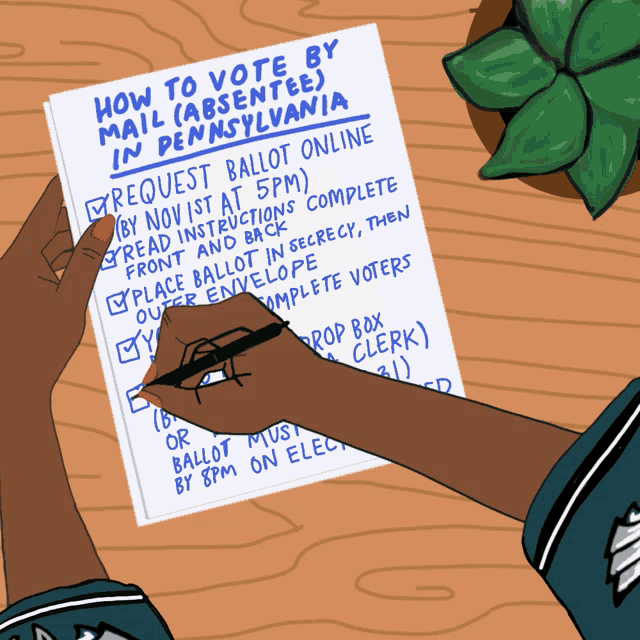 HOW TO VOTE BY
MAIL (ABSENTEE)
IN PENNSYLVANIA
REQUEST BALLOT ONLINE
(BY NOV 1ST AT 5PM)
READ INSTRUCTIONS COMPLETE
FRONT AND BACK
PLACE BALLOT IN SECRECY, THEN
OUTER ENVELOPE
COMPLETE VOTERS
DROP BOX
CLERK)
31)
OR
BALLOT MUST
BY 8PM ON